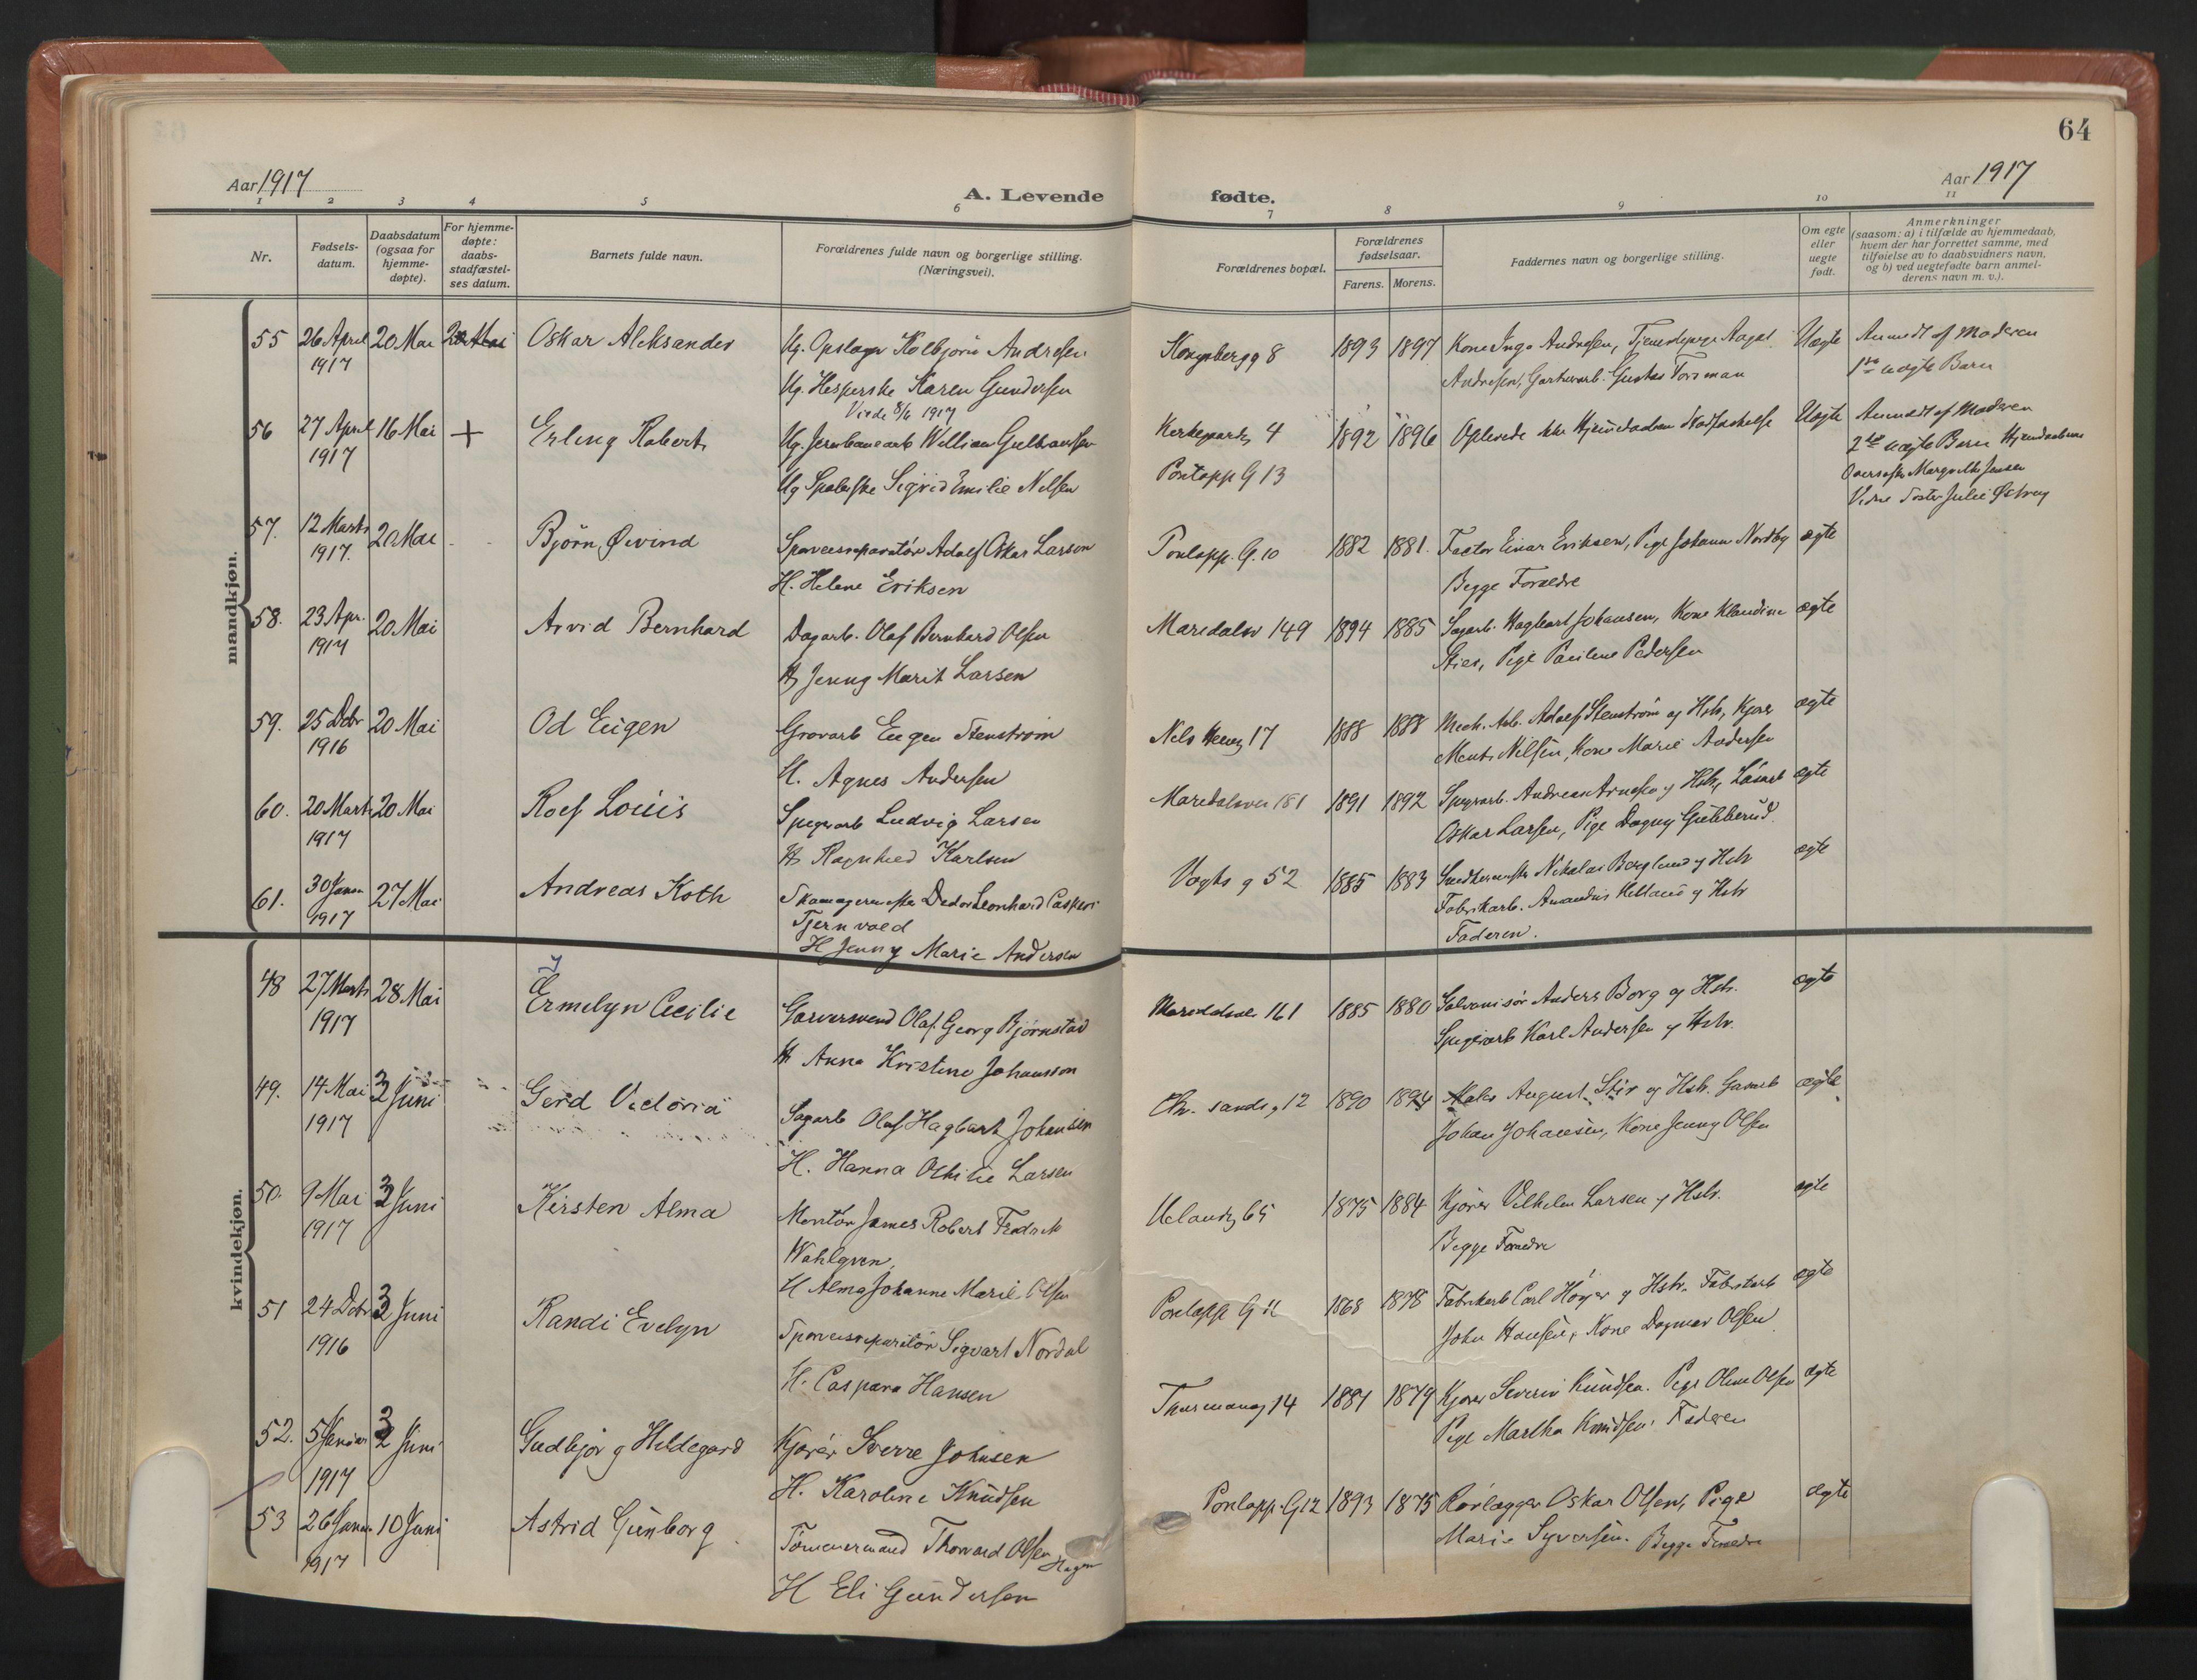 64
Aar 1917
A. Levende fødte.
Aar 1917
1 2 3 4 5 6 7 8 9 10 11
Nr.
Fødsels-
datum.
Daabsdatum
(ogsaa for
hjemme-
døpte).
For hjemme-
døpte:
daabs-
stadfæstel-
ses datum.
Barnets fulde navn.
Forældrenes fulde navn og borgerlige stilling.
(Næringsvei).
Forældrenes bopæl.
Forældrenes
fødselsaar.
Farens. Morens.
Faddernes navn og borgerlige stilling.
Om egte
eller
uegte
født.
Anmerkninger
(saasom: a) i tilfælde av hjemmedaab,
hvem der har forrettet samme, med
tilføielse av to daabsvidners navn,
og b) ved uegtefødte barn anmel-
derens navn m. v.).
mandkjøn.
55 26 April 20 Mai Oskar Aleksander Ug. Opslager Kolbjørn Andresen Kongsbergg 8 1893 1897 Kone Inga Andresen, Tjenestepige Aagot Uægte Anmeldt af Moderen
1917 Ug. Hesperske Karen Gundersen Andresen, Gartnerarb. Gustav Torsman 1ste uægte Barn
Viede 8/6 1917
56 27 April 16 Mai + Erling Robert Ug. Jernbanearb William Gulbransen 4 1892 1896 Oplevede ikke Hjemmedaabens Stadfæstelse Uægte Anmeldt af Moderen
1917 Ug Spolerske Sigrid Emilie Nilsen Pontopp G 13 2det uægte Barn Hjemdøberen
Margrethe Jensen
Julie
57. 12 Marts 20 Mai Bjørn Øivind Sporveisreparatør Adolf Oskar Larson Pontopp. G. 10 1882 1881. Factor Einar Eriksen, Pige Johanne Nordby ægte
1917. H. Helene Eriksen Begge Forældre
58. 23 Apr. 20 Mai Arvid Bernhard Dagarb. Olaf Bernhard Olsen Maridalsv 149 1894 1885 Sagarb. Hagbart Johansen, Kone Klaudine ægte
1917 H Jenny Marit Larsen Stier, Pige Pauline Pedersen
59. 25 Dcbr 20 Mai Od Eugen Grovarb Eugen Stenstrøm Nels 17 1888 1888 Mech. Arb. Adolf Stenstrøm og Hstr, Kjører ægte
1916 H. Agnes Andersen Nilsen, Kone Marie Andersen
60. 20 Marts 20 Mai Rolf Louis Spigerarb Ludvig Larsen Maridalsvei 181 1891 1892 Spigrarb. Andreas Arnesen og Hstr, ægte
1917 H Ragnhild Karlsen Oskar Larsen, Pige Dagny Gulbberud.
61. 30 Januar 27 Mai Andreas Koth Skomagermester Leonhard Casperi Vogts g 52 1885 1883 Nikolai Berglund og Hstr ægte
1917 Tjernvold Fabrikarb. Amandus Helland og Hstr
H Jenny Marie Andersen Faderen.
kvindekjøn.
y
48 27 Marts 28 Mai Ermelyn Cecilie Garversvend Olaf Georg Bjørnstad Maridalsvei 161 1885 1880 Galvanisør Anders Borg og Hstr. ægte
1917 H Anna Kristine Johansson Spigerarb Karl Andersen og Hstr.
49. 14 Mai 3 Juni Gerd Victoria Sagarb Olaf Hagbart Johansen Chr. sandsg 12 1890 1894 August Stir og Hstr. ægte
1917 H. Hanna Othilie Larsen Johan Johansen, Kone Jenny Olsen
50. 9 Mai 3 Juni Kirsten Alma Montør James Robert Fredrik Uelandsg 65 1875 1884 Kjører Vilhelm Larsen og Hstr. ægte
1917 Wahlgren, Begge Forældre
H Alma Johanne Marie Olsen
51 24 Dcbr 3 Juni Randi Evelyn Sporveisreparatør Sigvart Nordal Pontopp G 11 1868 1878 Fabrikarb Carl Høyer og Hstr. Fabrikarb ægte
1916 H. Caspara Hansen John Hansen, Kone Dagmar Olsen
52. 5 Januar 3 Juni Gudbjørg Hildegard Kjører Sverre Johnsen Thurmannsg 14 1881 1879 Kjører Severin Knudsen. Pige Oline Olsen ægte
1917 H. Karoline Knudsen Pige Martha Knudsen. Faderen
53 26 Januar 10 Juni Astrid Gunborg Tømmermand Thorvard Olsen Hagen Pontopp. G 12 1893 1875 Rørlægger Oskar Olsen, Pige ægte
1917 H Eli Gundersen Marie Syversen. Begge Forældre